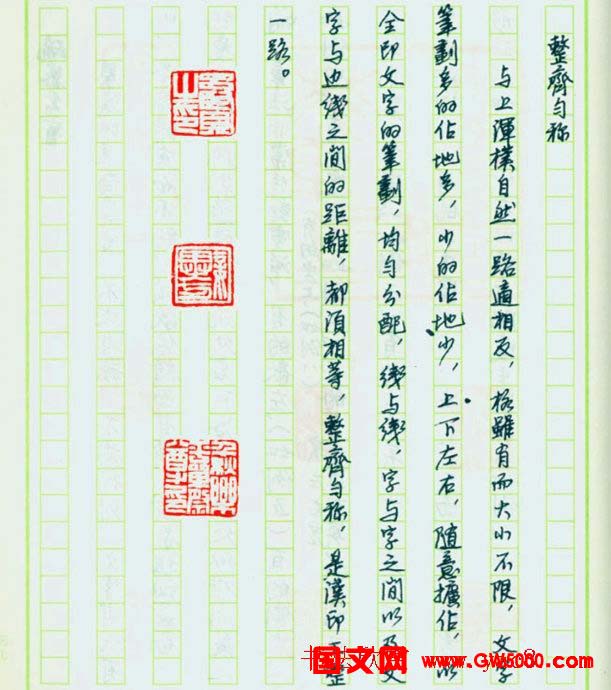 整齊匀称
与上渾樸自然一路適相反，格雖有而大小不限，文字
筆劃多的佔地多，少的佔地少，上下左右，随意擴佔，以
全即文字的筆劃，均匀分配，綫与綫，字与字之間以及文
字与边綫之间的距離，都須相等，整齊匀称，是漢印
一路。
国文网
www.GW5000.com